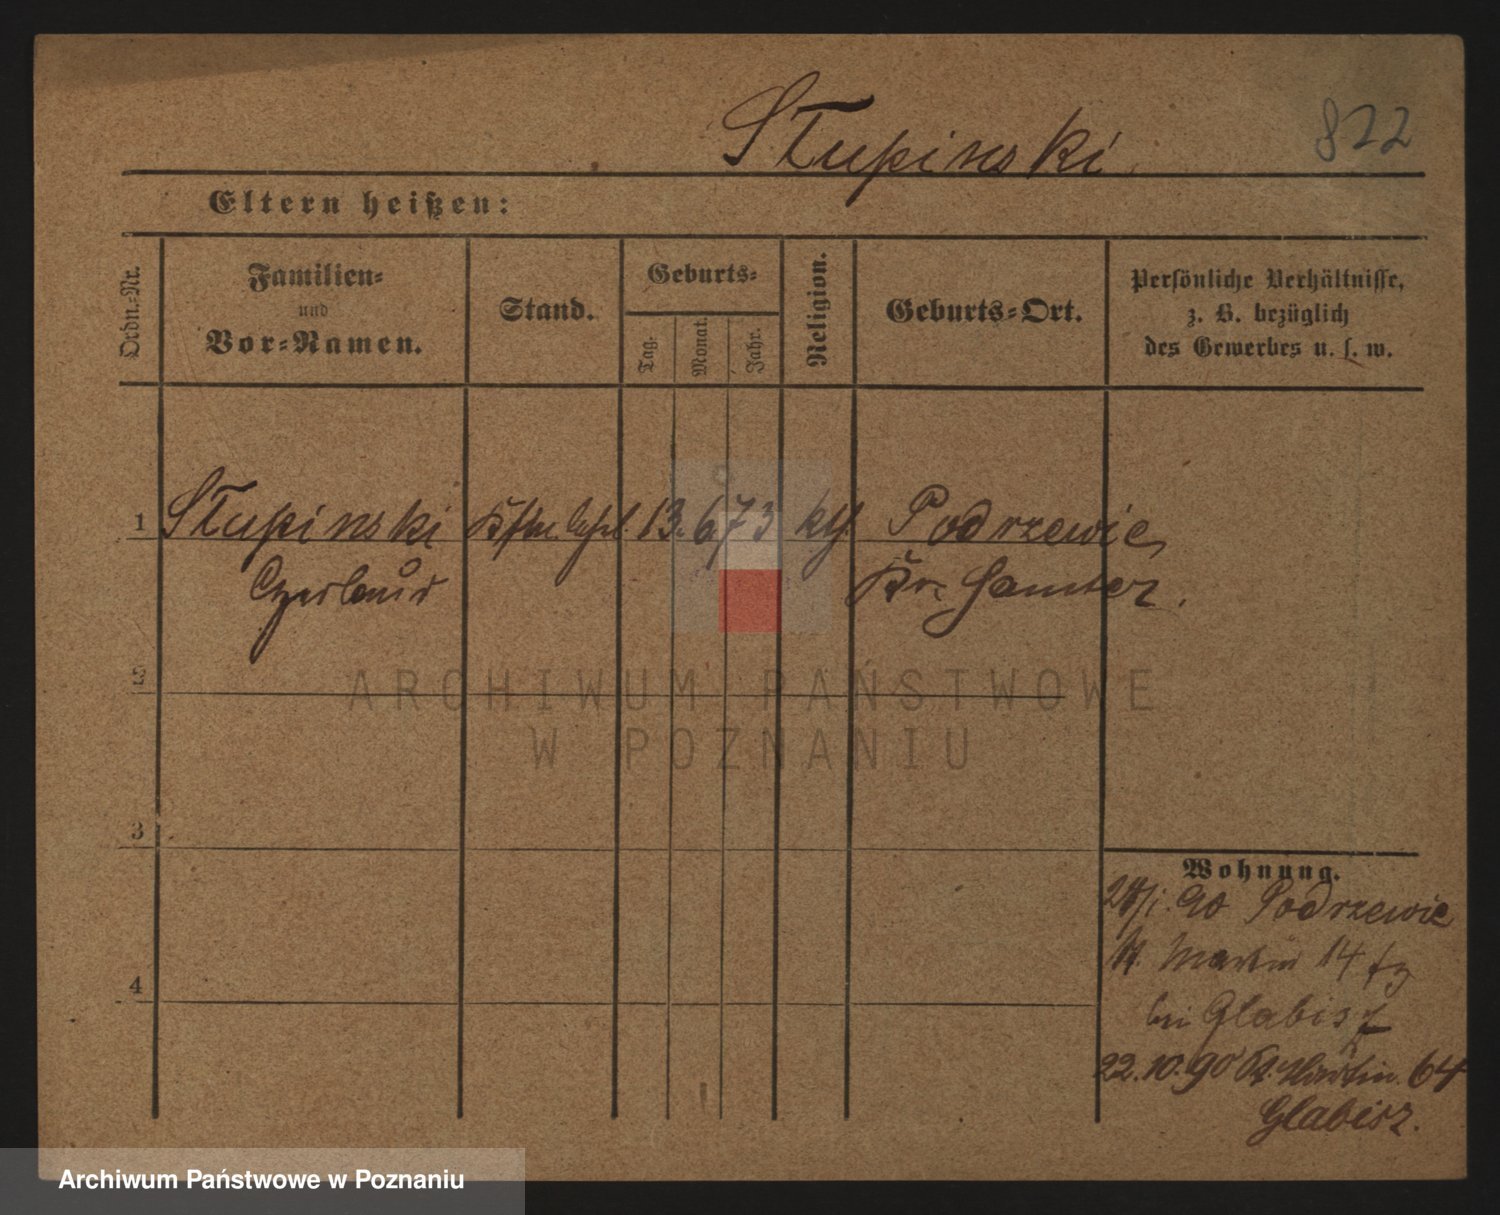 Słupinski
822
Eltern heißen:
Ordn.-Nr.
Familien-
und
Vor-Namen.
Stand.
Geburts-
Tag.
Monat.
Jahr.
Religion.
Geburts-Ort.
Persönliche Verhältnisse,
z. B. bezüglich
des Gewerbes u. s. w.
1 Słupinski 13. 6. 73 kth. Podrzewie
Kr. Samter.
2
3
4
ARCHIWUM PAŃSTWOWE
W POZNANIU
Wohnung.
90 Podrzewie
St. Martin 14
bei Glabisz
22.10.90 St. Martin 64
Glabisz.
Archiwum Państwowe w Poznaniu